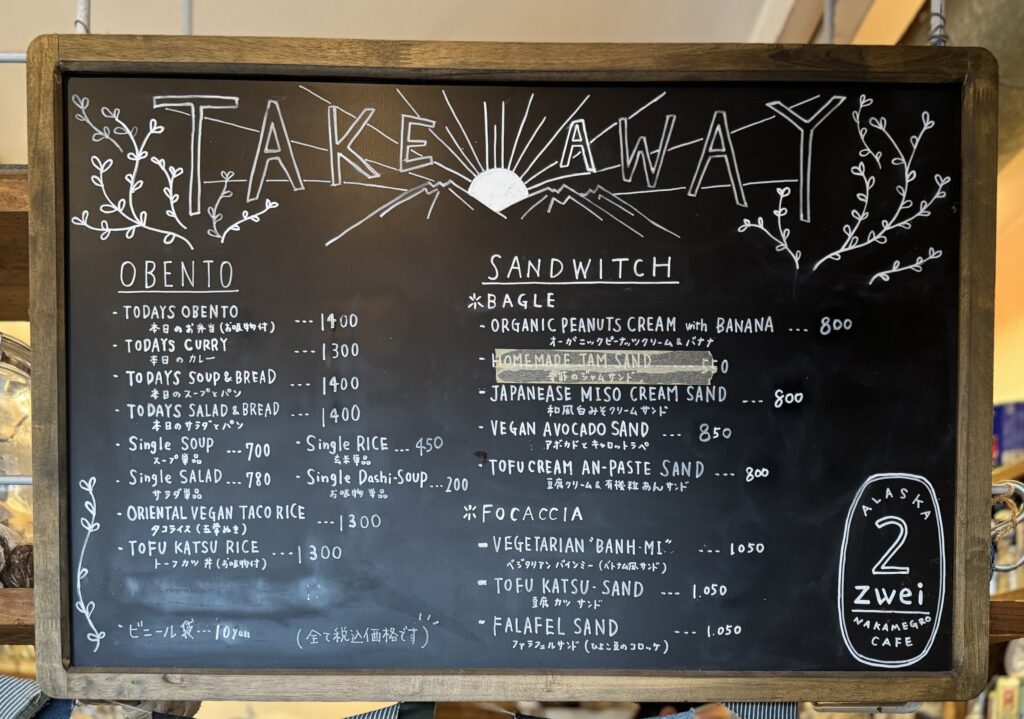 TAKE AWAY
OBENTO
- TODAYS OBENTO --- 1400
本日のお弁当 (お吸物付)
- TODAYS CURRY --- 1300
本日のカレー
- TODAYS SOUP & BREAD --- 1400
本日のスープとパン
- TODAYS SALAD & BREAD --- 1400
本日のサラダとパン
- Single SOUP --- 700
スープ単品
- Single RICE --- 450
玄米単品
- Single SALAD --- 780
サラダ単品
- Single Dashi-Soup --- 200
お吸物 単品
- ORIENTAL VEGAN TACO RICE --- 1300
タコライス (五葷ぬき)
- TOFU KATSU RICE --- 1300
トーフカツ丼 (お吸物付)
- ビニール袋 --- 10yen
(全て税込価格です)
SANDWITCH
※BAGLE
- ORGANIC PEANUTS CREAM with BANANA --- 800
オーガニックピーナッツクリーム & バナナ
- HOMEMADE JAM SAND 550
季節のジャムサンド
- JAPANEASE MISO CREAM SAND --- 800
和風白みそクリームサンド
- VEGAN AVOCADO SAND --- 850
アボカドとキャロットラペ
- TOFU CREAM AN-PASTE SAND --- 800
豆腐クリーム & 有機粒あんサンド
※FOCACCIA
- VEGETARIAN "BANH-MI" --- 1050
ベジタリアン バインミー (ベトナム風サンド)
- TOFU KATSU-SAND --- 1.050
豆腐 カツ サンド
- FALAFEL SAND --- 1.050
ファラフェルサンド (ひよこ豆のコロッケ)
ALASKA
2
zwei
NAKAMEGRO
CAFE